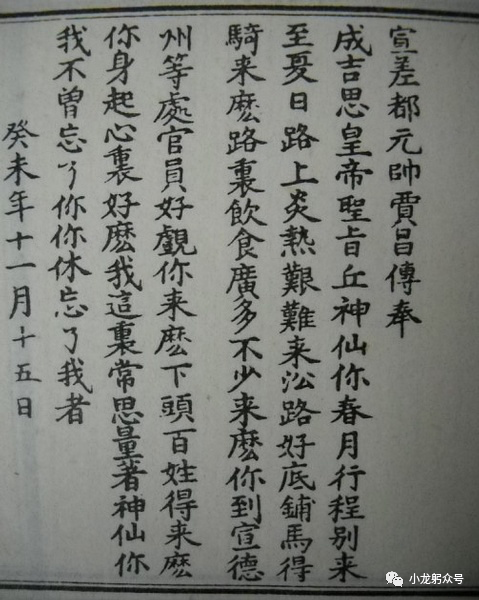 宣差都元帥賈昌傳奉
成吉思皇帝聖旨丘神仙你春月行程别来
至夏日路上炎熱艱難来㳂路好底鋪馬得
騎来麽路裏飲食廣多不少来麽你到宣德
州等處官員好覷你来麽下頭百姓得来麽
你身起心裏好麽我這裏常思量著神仙你
我不曾忘了你你休忘了我者
癸未年十一月十五日
小龙躬众号